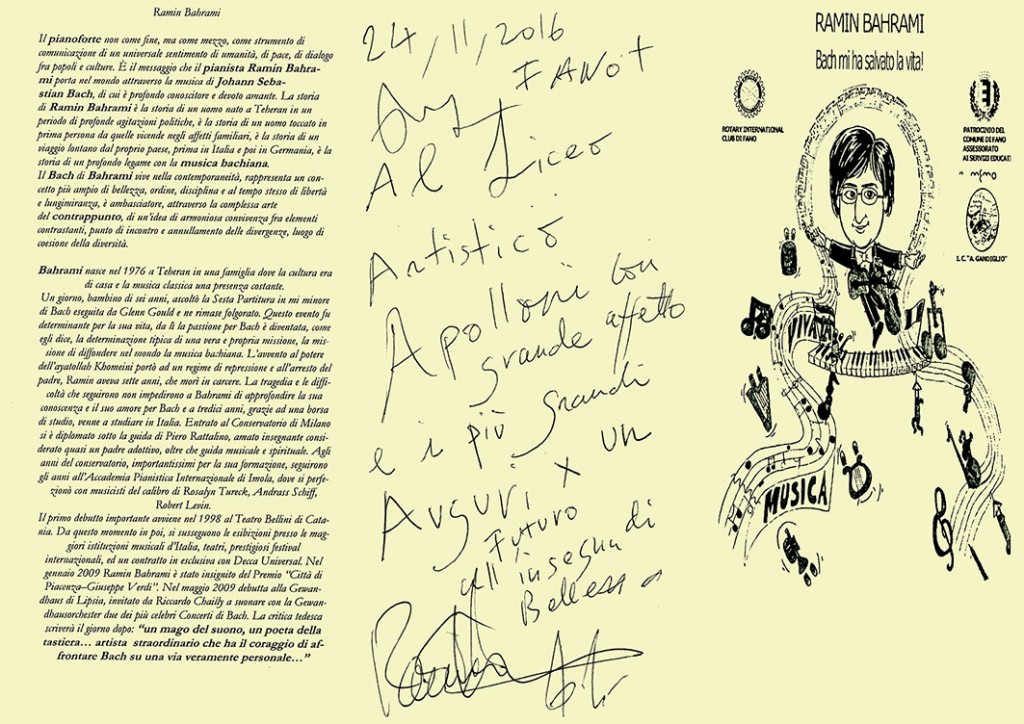 Ramin Bahrami
Il pianoforte non come fine, ma come mezzo, come strumento di
comunicazione di un universale sentimento di umanità, di pace, di dialogo
fra popoli e culture. È il messaggio che il pianista Ramin Bahra-
mi porta nel mondo attraverso la musica di Johann Seba-
stian Bach, di cui è profondo conoscitore e devoto amante. La storia
di Ramin Bahrami è la storia di un uomo nato a Teheran in un
periodo di profonde agitazioni politiche, è la storia di un uomo toccato in
prima persona da quelle vicende negli affetti familiari, è la storia di un
viaggio lontano dal proprio paese, prima in Italia e poi in Germania, è la
storia di un profondo legame con la musica bachiana.
Il Bach di Bahrami vive nella contemporaneità, rappresenta un con-
cetto più ampio di bellezza, ordine, disciplina e al tempo stesso di libertà
e lungimiranza, è ambasciatore, attraverso la complessa arte
del contrappunto, di un'idea di armoniosa convivenza fra elementi
contrastanti, punto di incontro e annullamento delle divergenze, luogo di
coesione della diversità.
Bahrami nasce nel 1976 a Teheran in una famiglia dove la cultura era
di casa e la musica classica una presenza costante.
Un giorno, bambino di sei anni, ascoltò la Sesta Partitura in mi minore
di Bach eseguita da Glenn Gould e ne rimase folgorato. Questo evento fu
determinante per la sua vita, da lì la passione per Bach è diventata, come
egli dice, la determinazione tipica di una vera e propria missione, la mis-
sione di diffondere nel mondo la musica bachiana. L'avvento al potere
dell'ayatollah Khomeini portò ad un regime di repressione e all'arresto del
padre, Ramin aveva sette anni, che morì in carcere. La tragedia e le diffi-
coltà che seguirono non impedirono a Bahrami di approfondire la sua
conoscenza e il suo amore per Bach e a tredici anni, grazie ad una borsa
di studio, venne a studiare in Italia. Entrato al Conservatorio di Milano
si è diplomato sotto la guida di Piero Rattalino, amato insegnante consi-
derato quasi un padre adottivo, oltre che guida musicale e spirituale. Agli
anni del conservatorio, importantissimi per la sua formazione, seguirono
gli anni all'Accademia Pianistica Internazionale di Imola, dove si perfe-
zionò con musicisti del calibro di Rosalyn Tureck, Andrass Schiff,
Robert Levin.
Il primo debutto importante avviene nel 1998 al Teatro Bellini di Cata-
nia. Da questo momento in poi, si susseguono le esibizioni presso le mag-
giori istituzioni musicali d'Italia, teatri, prestigiosi festival
internazionali, ed un contratto in esclusiva con Decca Universal. Nel
gennaio 2009 Ramin Bahrami è stato insignito del Premio "Città di
Piacenza–Giuseppe Verdi". Nel maggio 2009 debutta alla Gewan-
dhaus di Lipsia, invitato da Riccardo Chailly a suonare con la Gewan-
dhausorchester due dei più celebri Concerti di Bach. La critica tedesca
scriverà il giorno dopo: "un mago del suono, un poeta della
tastiera… artista straordinario che ha il coraggio di af-
frontare Bach su una via veramente personale…"
24/11/2016
FANO
Al Liceo
Artistico
Apolloni con
grande affetto
e i più grandi
Auguri x un
Futuro
all'insegna di
Bellezza
RAMIN BAHRAMI
Bach mi ha salvato la vita!
ROTARY INTERNATIONAL
CLUB DI FANO
PATROCINIO DEL
COMUNE DI FANO
ASSESSORATO
AI SERVIZI EDUCATI
memo
I.C. "A. GANDIGLIO"
VIVA LA
MUSICA